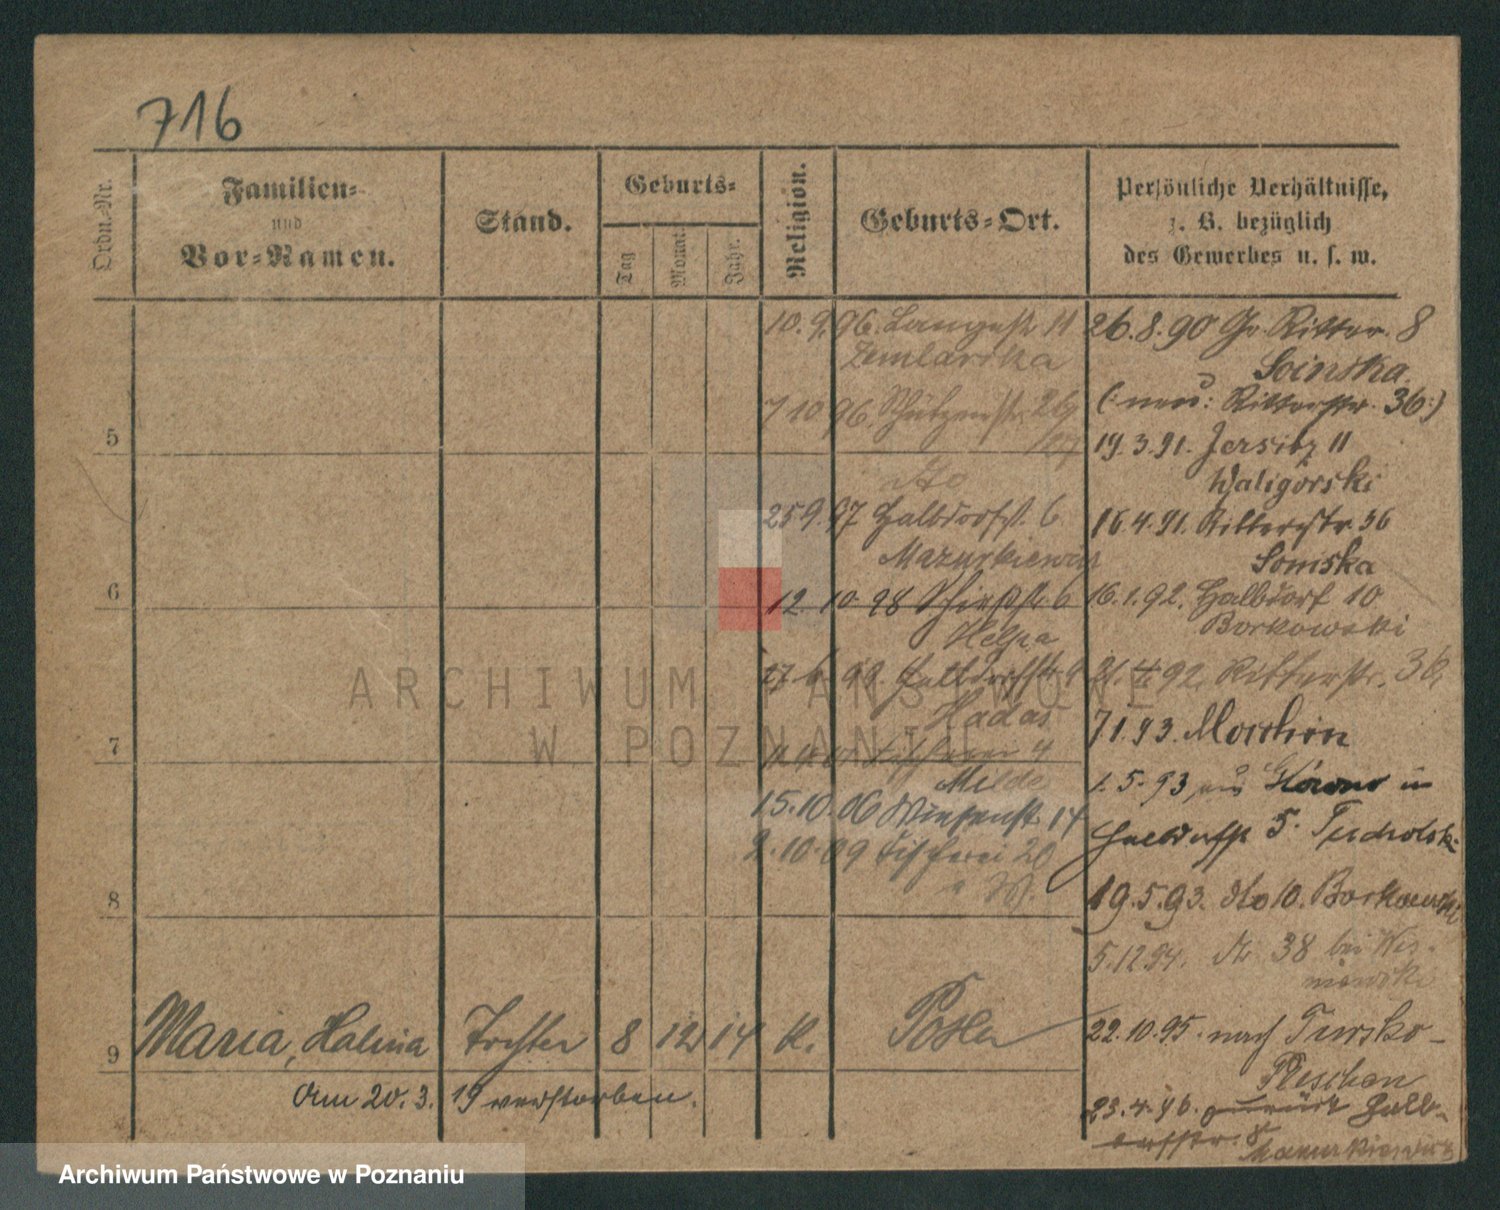 716
Ordn.-Nr.
Familien-
und
Vor-Namen.
Stand.
Geburts-
Tag
Monat.
Jahr.
Religion.
Geburts-Ort.
Persönliche Verhältnisse,
z. B. bezüglich
des Gewerbes u. s. w.
10.9.96. Langestr 11
7 10 96. Schützenstr. 26
5
dto
25 9. 97 Halbdorfstr. 6
Mazurkiewicz
6
12. 10. 98 Schießstr 6
Halbdorfstr 9
Hadas
7
Fischerei 4
Milde
15.10.06 Wiesenstr 14
2.10.09 Fischerei 20
8
9 Maria, Halina Tochter 8 12 14 k. Posen
Am 20.3.19 verstorben.
26.8.90 Gr. Ritter. 8
Soinska
(: neu: Ritterstr. 36:)
19.3.91. Jersitz 11
Waligorski
16.4.91. Ritterstr. 36
Soniska
16.1.92. Halbdorf 10
Borkowski
21.4.92. Ritterstr. 36,
7 1.93. Moschin
1.5.93, aus in
Halbdorfstr 5. Tucholsk-
19.5.93. dto 10. Borkowski
5.12.94. 38 bei Wis-
niewski
22.10.95. nach Tursko-
Pleschen
23.4.96. zurück Halb-
dorfstr. 8
Mazurkiewicz
ARCHIWUM PAŃSTWOWE
W POZNANIU
Archiwum Państwowe w Poznaniu